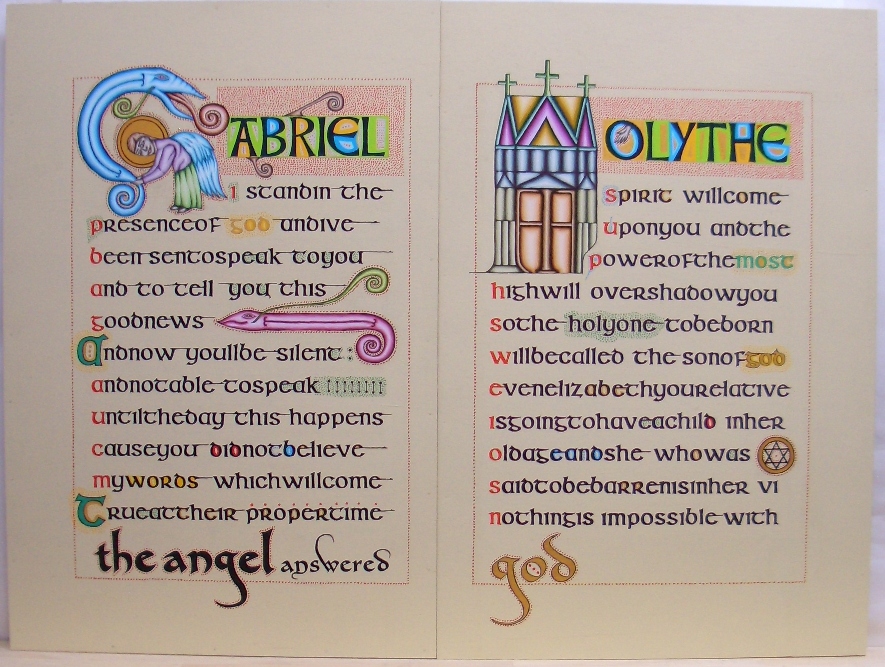 GABRIEL
I standin the
presenceof god andive
been sentospeak toyou
and to tell you this
goodnews
Andnow youllbe silent:
andnotable tospeak
untiltheday this happens
causeyou didnotbelieve
mywords whichwillcome
Trueattheir propertime
the angel answered
HOLYTHE
spirit willcome
uponyou andthe
powerofthemost
highwill overshadowyou
sothe holyone tobeborn
willbecalled the sonofgod
evenelizabethyourelative
isgoingtohaveachild inher
oldageandshe whowas
saidtobebarrenisinher vi
nothingis impossible with
god